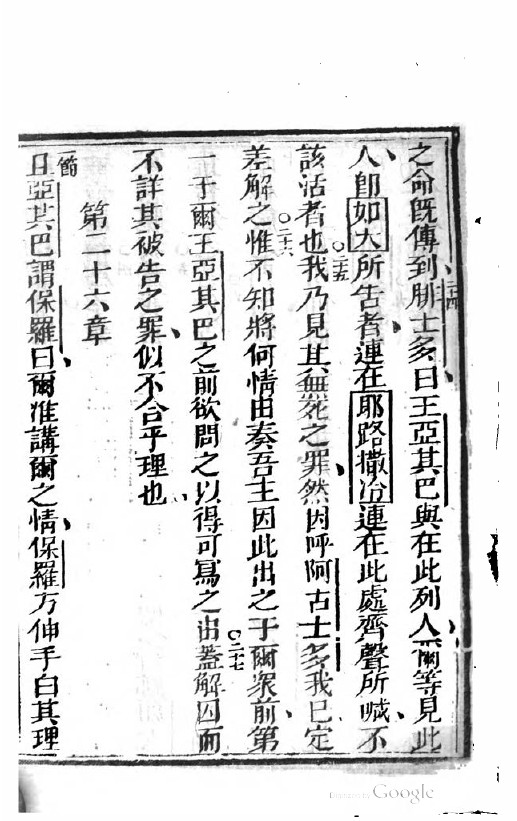 之命既傳到腓士多曰王亞其巴與在此列人爾等見此
二十四
人卽如大所告者連在耶路撒冷連在此處齊聲所喊不
○二十五
該活者也我乃見其無死之罪然因呼阿古士多我已定
○二十六
差解之惟不知將何情由奏吾主因此出之于爾眾前第
一于爾王亞其巴之前欲問之以得可寫之出蓋解囚而
○二十七
不詳其被告之罪似不合乎理也
第二十六章
一節
且亞其巴謂保羅曰爾准講爾之情保羅方伸手白其理
Digitized by Google